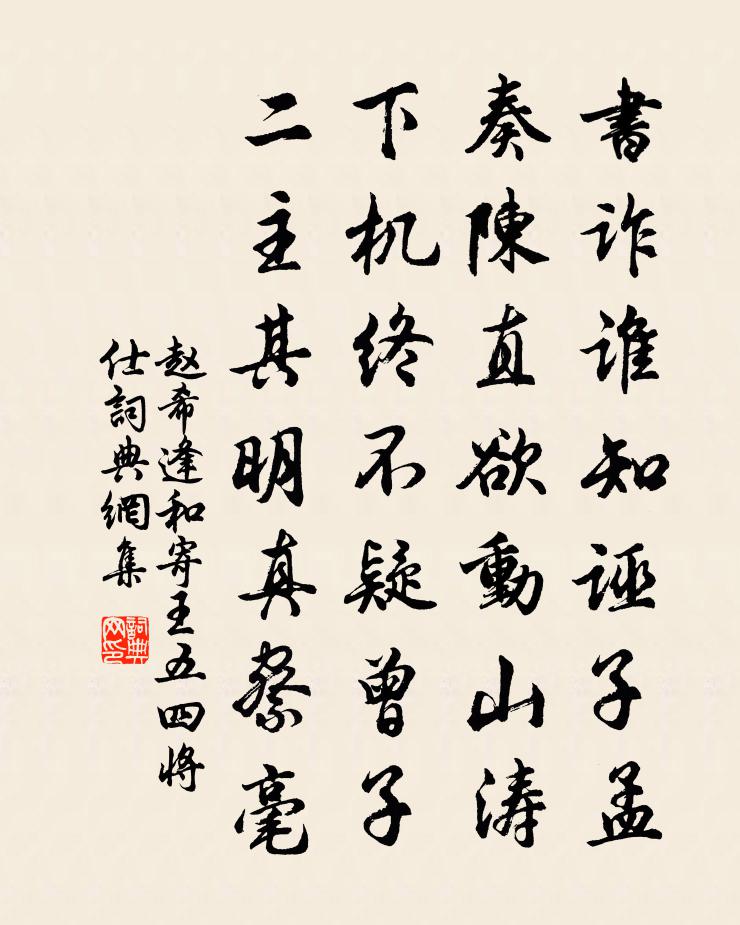 書詐誰知誣子孟
奏陳直欲動山涛
下机终不疑曾子
二主其明真察毫
赵希逢和寄王五四將
仕詞典網集
詞典网印